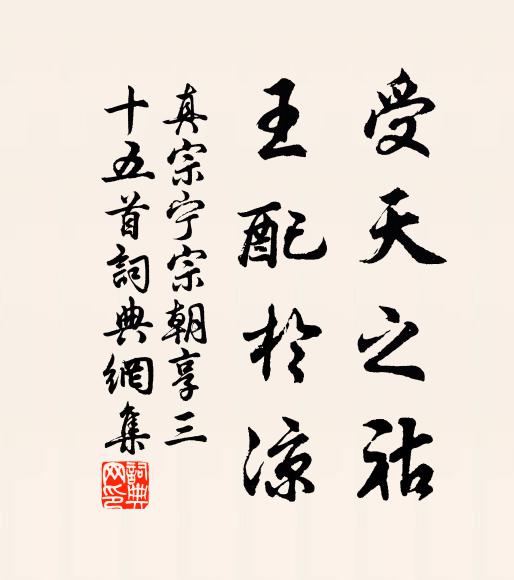 受天之祜
王配於涼
真宗宁宗朝享三
十五首詞典網集
詞典
网印